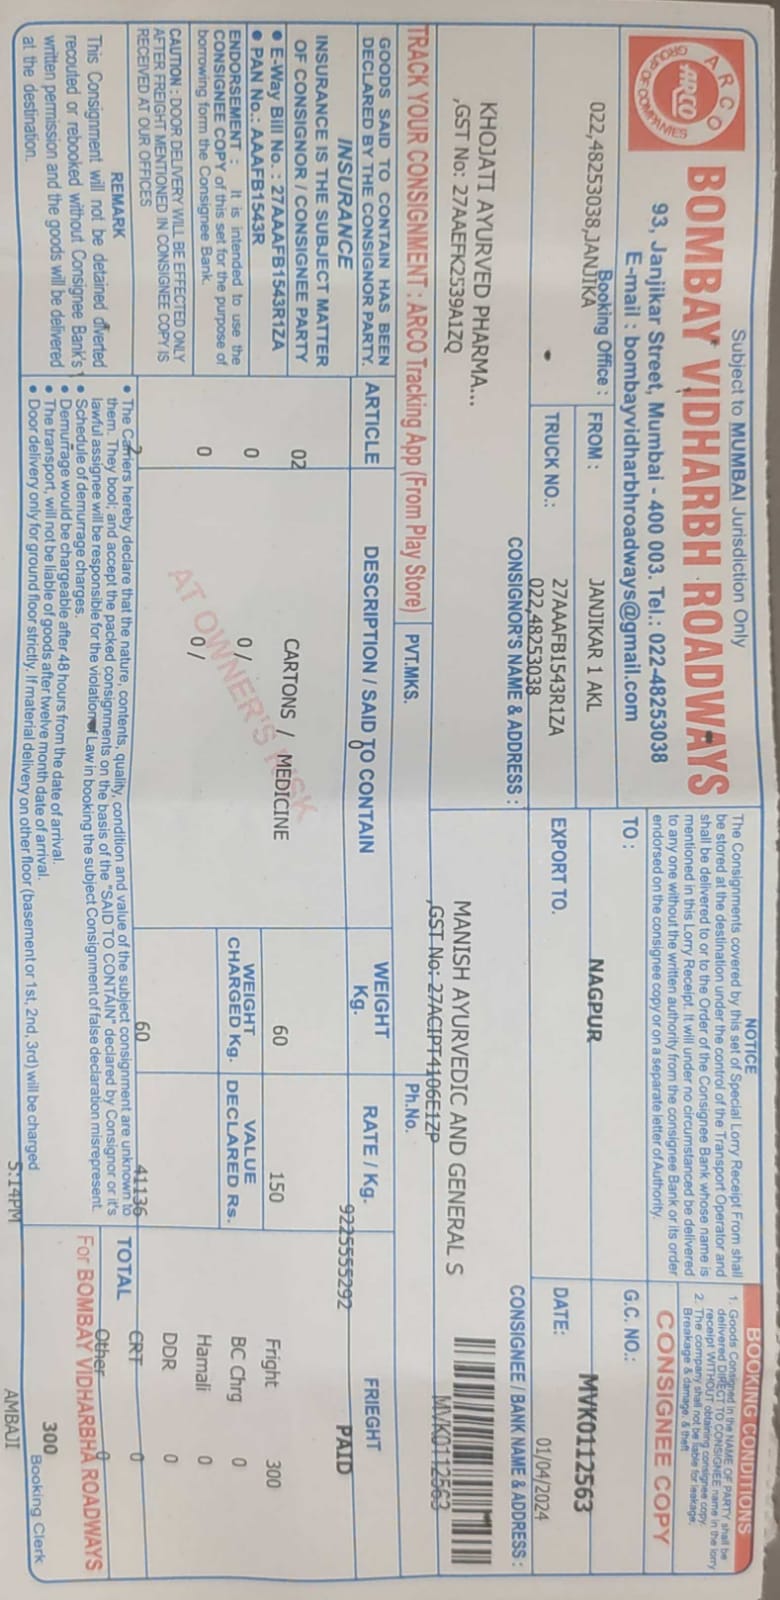 Subject to MUMBAI Jurisdiction Only
ARCO
ARCO
GROUP OF COMPANIES
BOMBAY VIDHARBH ROADWAYS
93, Janjikar Street, Mumbai - 400 003. Tel.: 022-48253038
E-mail : bombayvidharbhroadways@gmail.com
NOTICE
The Consignments covered by this set of Special Lorry Receipt From shall
be stored at the destination under the control of the Transport Operator and
shall be delivered to or to the Order of the Consignee Bank whose name is
mentioned in this Lorry Receipt. It will under no circumstanced be delivered
to any one without the written authority from the consignee Bank or its order
endorsed on the consignee copy or on a separate letter of Authority.
BOOKING CONDITIONS
1. Goods Consigned in the NAME OF PARTY shall be
delivered DIRECT TO CONSIGNEE name in the lorry
receipt WITHOUT obtaining consignee copy.
2. The company shall not be liable for leakage,
Breakage & damage. & theft
CONSIGNEE COPY
Booking Office :
022,48253038,JANJIKA
FROM :
JANJIKAR 1 AKL
TO :
NAGPUR
G.C. NO.:
MVK0112563
TRUCK NO.:
27AAAFB1543R1ZA
022,48253038
EXPORT TO.
DATE:
01/04/2024
CONSIGNOR'S NAME & ADDRESS :
KHOJATI AYURVED PHARMA...
,GST No: 27AAEFK2539A1ZQ
CONSIGNEE / BANK NAME & ADDRESS :
MANISH AYURVEDIC AND GENERAL S
,GST No: 27ACIPT4106E1ZP
MVK0112563
TRACK YOUR CONSIGNMENT : ARCO Tracking App (From Play Store)
PVT.MKS.
Ph.No.
9225555292
GOODS SAID TO CONTAIN HAS BEEN
DECLARED BY THE CONSIGNOR PARTY.
INSURANCE
INSURANCE IS THE SUBJECT MATTER
OF CONSIGNOR / CONSIGNEE PARTY
• E-Way Bill No. : 27AAAFB1543R1ZA
• PAN No.: AAAFB1543R
ENDORSEMENT : It is intended to use the
CONSIGNEE COPY of this set for the purpose of
borrowing form the Consignee Bank.
CAUTION : DOOR DELIVERY WILL BE EFFECTED ONLY
AFTER FREIGHT MENTIONED IN CONSIGNEE COPY IS
RECEIVED AT OUR OFFICES
REMARK
This Consignment will not be detained diverted
recouted or rebooked without Consignee Bank's
written permission and the goods will be delivered
at the destination.
ARTICLE
DESCRIPTION / SAID TO CONTAIN
WEIGHT
Kg.
RATE / Kg.
FRIEGHT
PAID
02
CARTONS / MEDICINE
60
150
Fright 300
0
0 /
WEIGHT
CHARGED Kg.
VALUE
DECLARED Rs.
BC Chrg 0
0
0 /
Hamali 0
DDR 0
AT OWNER'S RISK
2
60
41136
CRT 0
TOTAL
Other 0
• The Carriers hereby declare that the nature, contents, quality, condition and value of the subject consignment are unknown to
them. They bool; and accept the packed consignments on the basis of the "SAID TO CONTAIN" declared by Consignor or it's
lawful assignee will be responsible for the violation of Law in booking the subject Consignment of false declaration misrepresent.
• Schedule of demurrage charges.
• Demurrage would be chargeable after 48 hours from the date of arrival.
• The transport, will not be liable of goods after twelve month date of arrival.
• Door delivery only for ground floor strictly. If material delivery on other floor (basement or 1st, 2nd, 3rd) will be charged
For BOMBAY VIDHARBHA ROADWAYS
300
Booking Clerk
5:14PM
AMBAJI